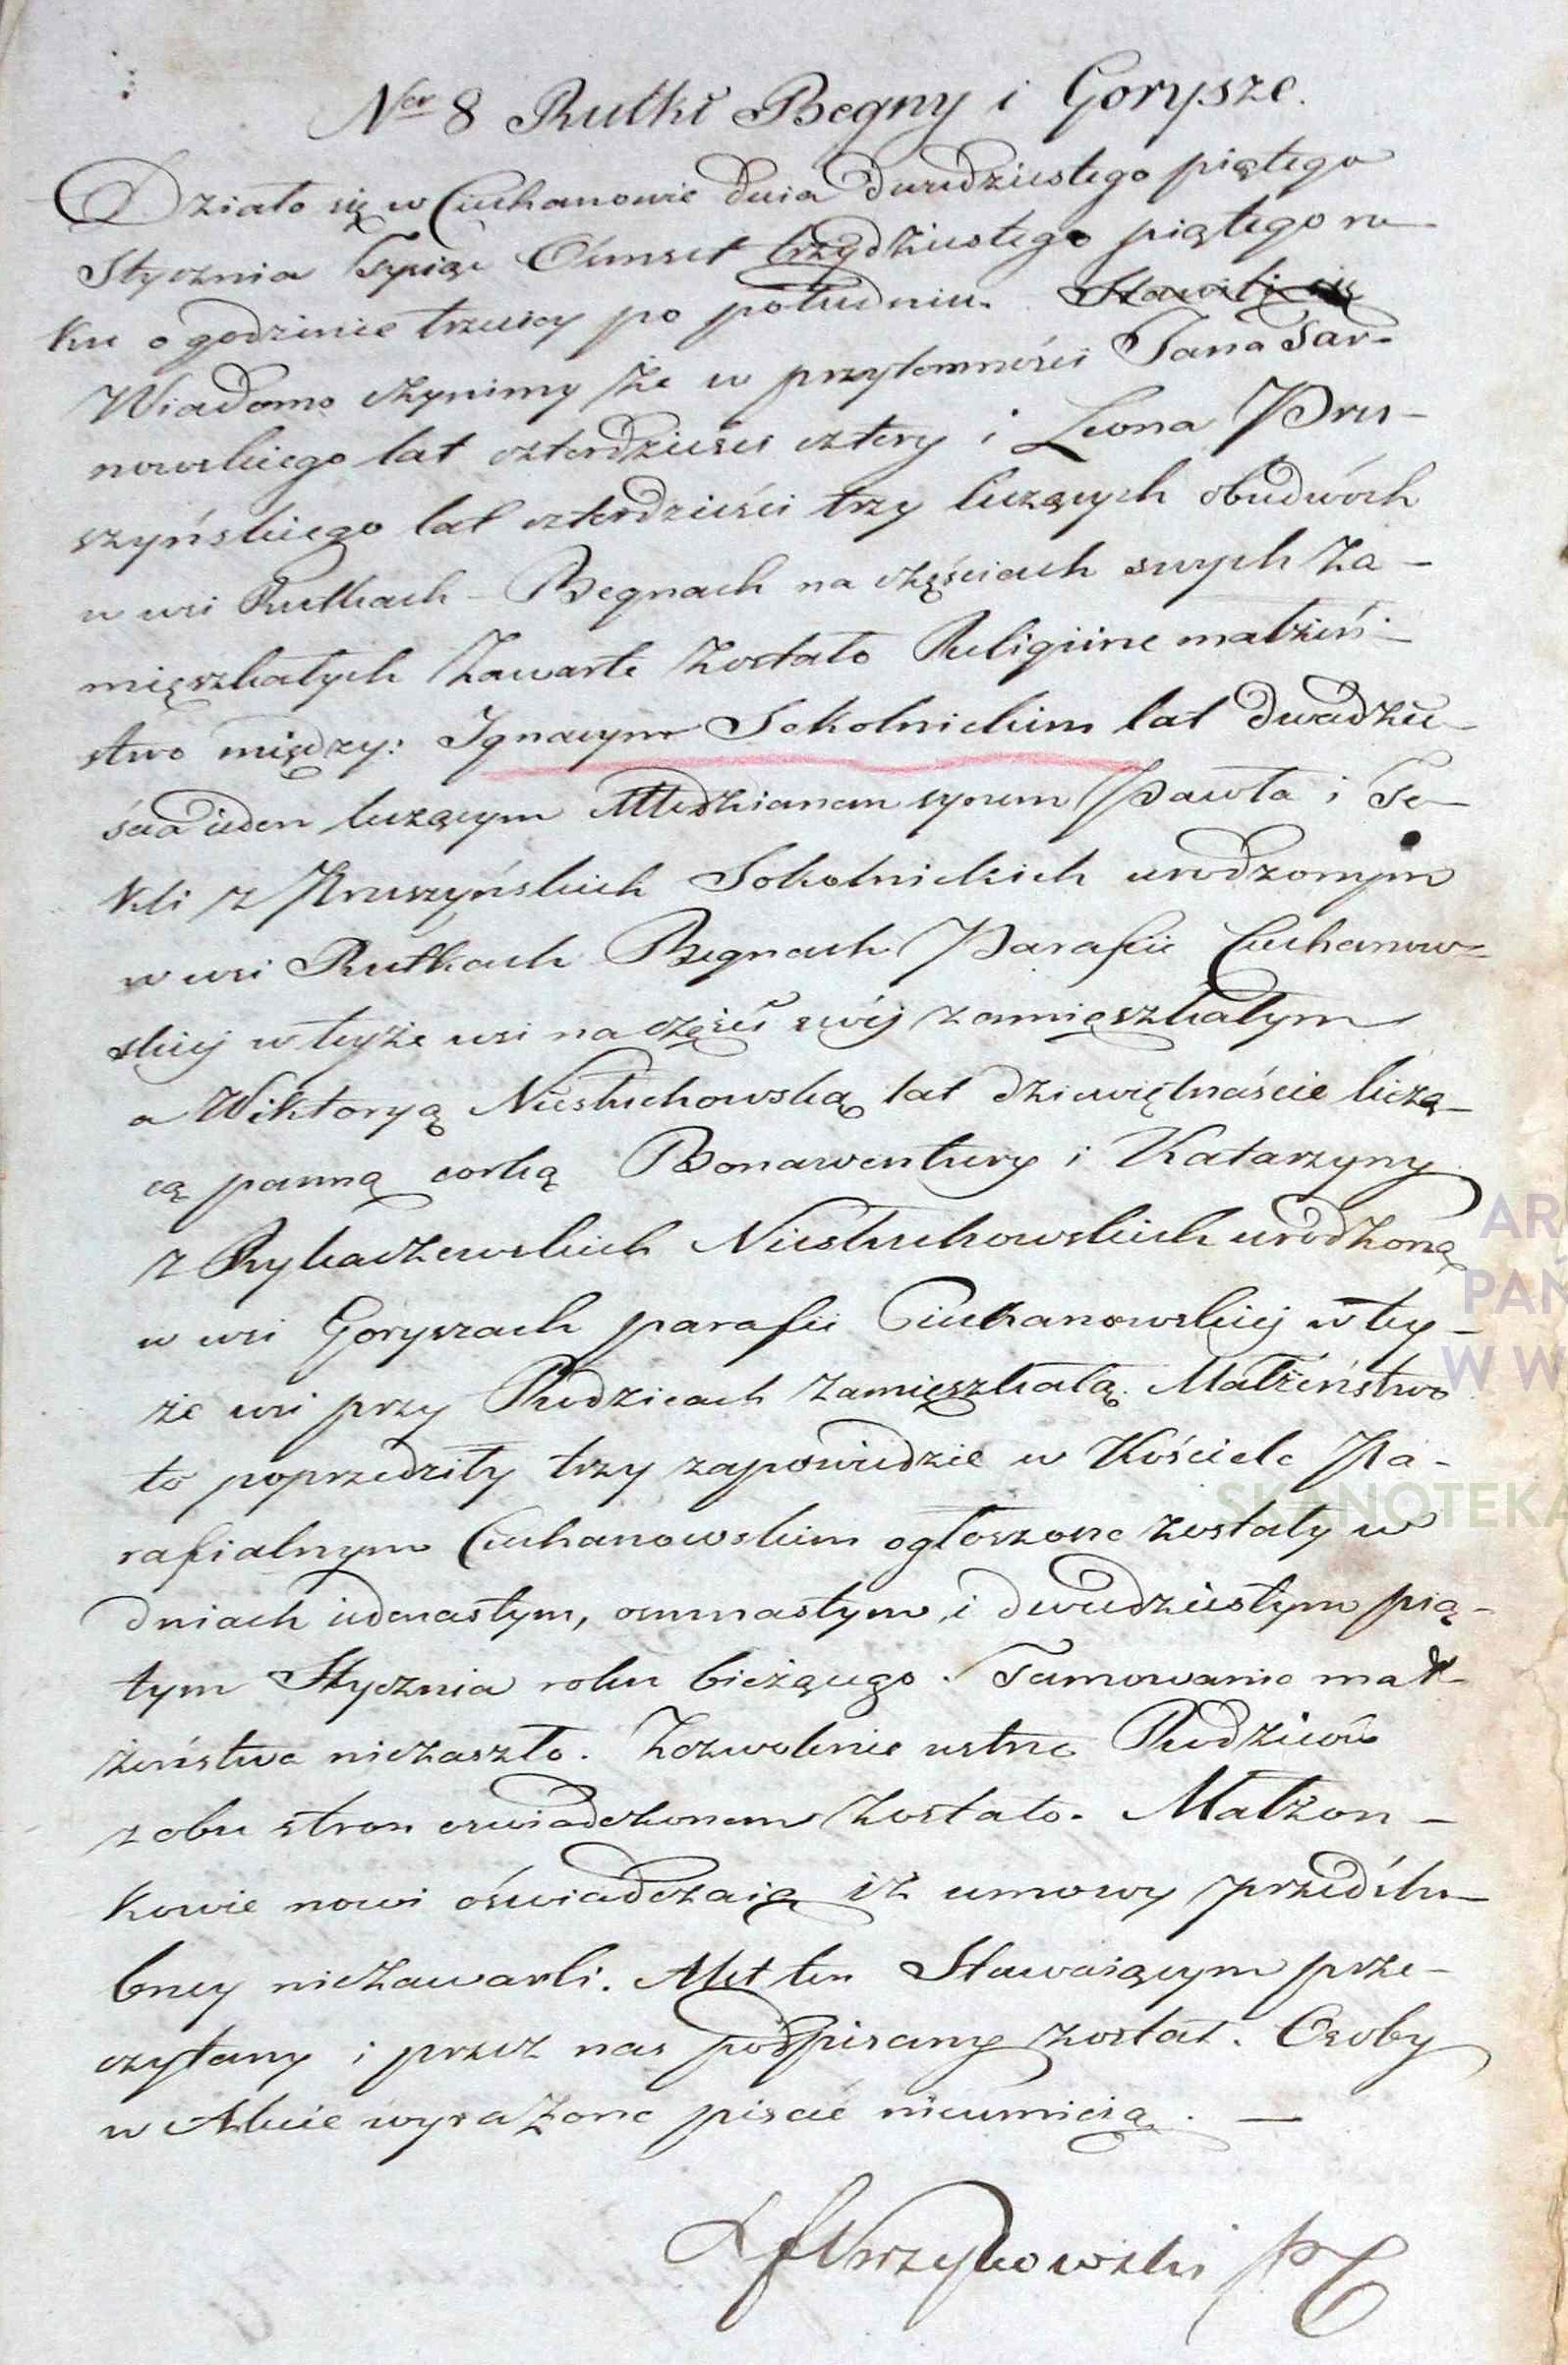 Ner 8 Rutki Begny i Gorysze.
Działo się w Ciechanowie dnia dwudziestego piątego
Stycznia Tysiąc Ośmset trzydziestego piątego ro
ku o godzinie trzeciey po południu. Stawili się
Wiadomo czynimy że w przytomności Jana Tar-
nowskiego lat czterdzieści cztery i Leona Pru-
szyńskiego lat czterdzieści trzy liczących obudwóch
w wsi Rutkach - Begnach na częściach swych za-
mięszkałych zawarte zostało Religiine małżeń-
stwo między: Ignacym Sokolnickim lat dwadzie-
ścia ieden liczącym Młodzianem synem Pawła i Te-
kli z Kruszyńskich Sokolnickich urodzonym
w wsi Rutkach Begnach Parafii Ciechanow-
skiej w teyże wsi na części swéj zamięszkałym
a Wiktoryą Niesłuchowską lat dziewiętnaście liczą-
cą panną corką Bonawentury i Katarzyny
z Rykaczewskich Niesłuchowskich urodzoną
w wsi Goryszach parafii Ciechanowskiej w tey-
że wsi przy Rodzicach zamięszkałą. Małżeństwo
to poprzedziły trzy zapowiedzie w Kościele Pa-
rafialnym Ciechanowskim ogłoszone zostały w
dniach iedenastym, osmnastym, i dwudziestym pią-
tym Stycznia roku bieżącego. Tamowanie mał-
żeństwa niezaszło. Zezwolenie ustne Rodziców
z obu stron oswiadczonem zostało. Małżon-
kowie nowi oświadczaią iż umowy przedślu-
bney niezawarli. Akt ten Stawaiącym prze-
czytany i przez nas podpisany został. Osoby
w Akcie wyrażone pisać nieumieią. —
Krzykowski PC
AR
PAŃ
W W
SKANOTEKA